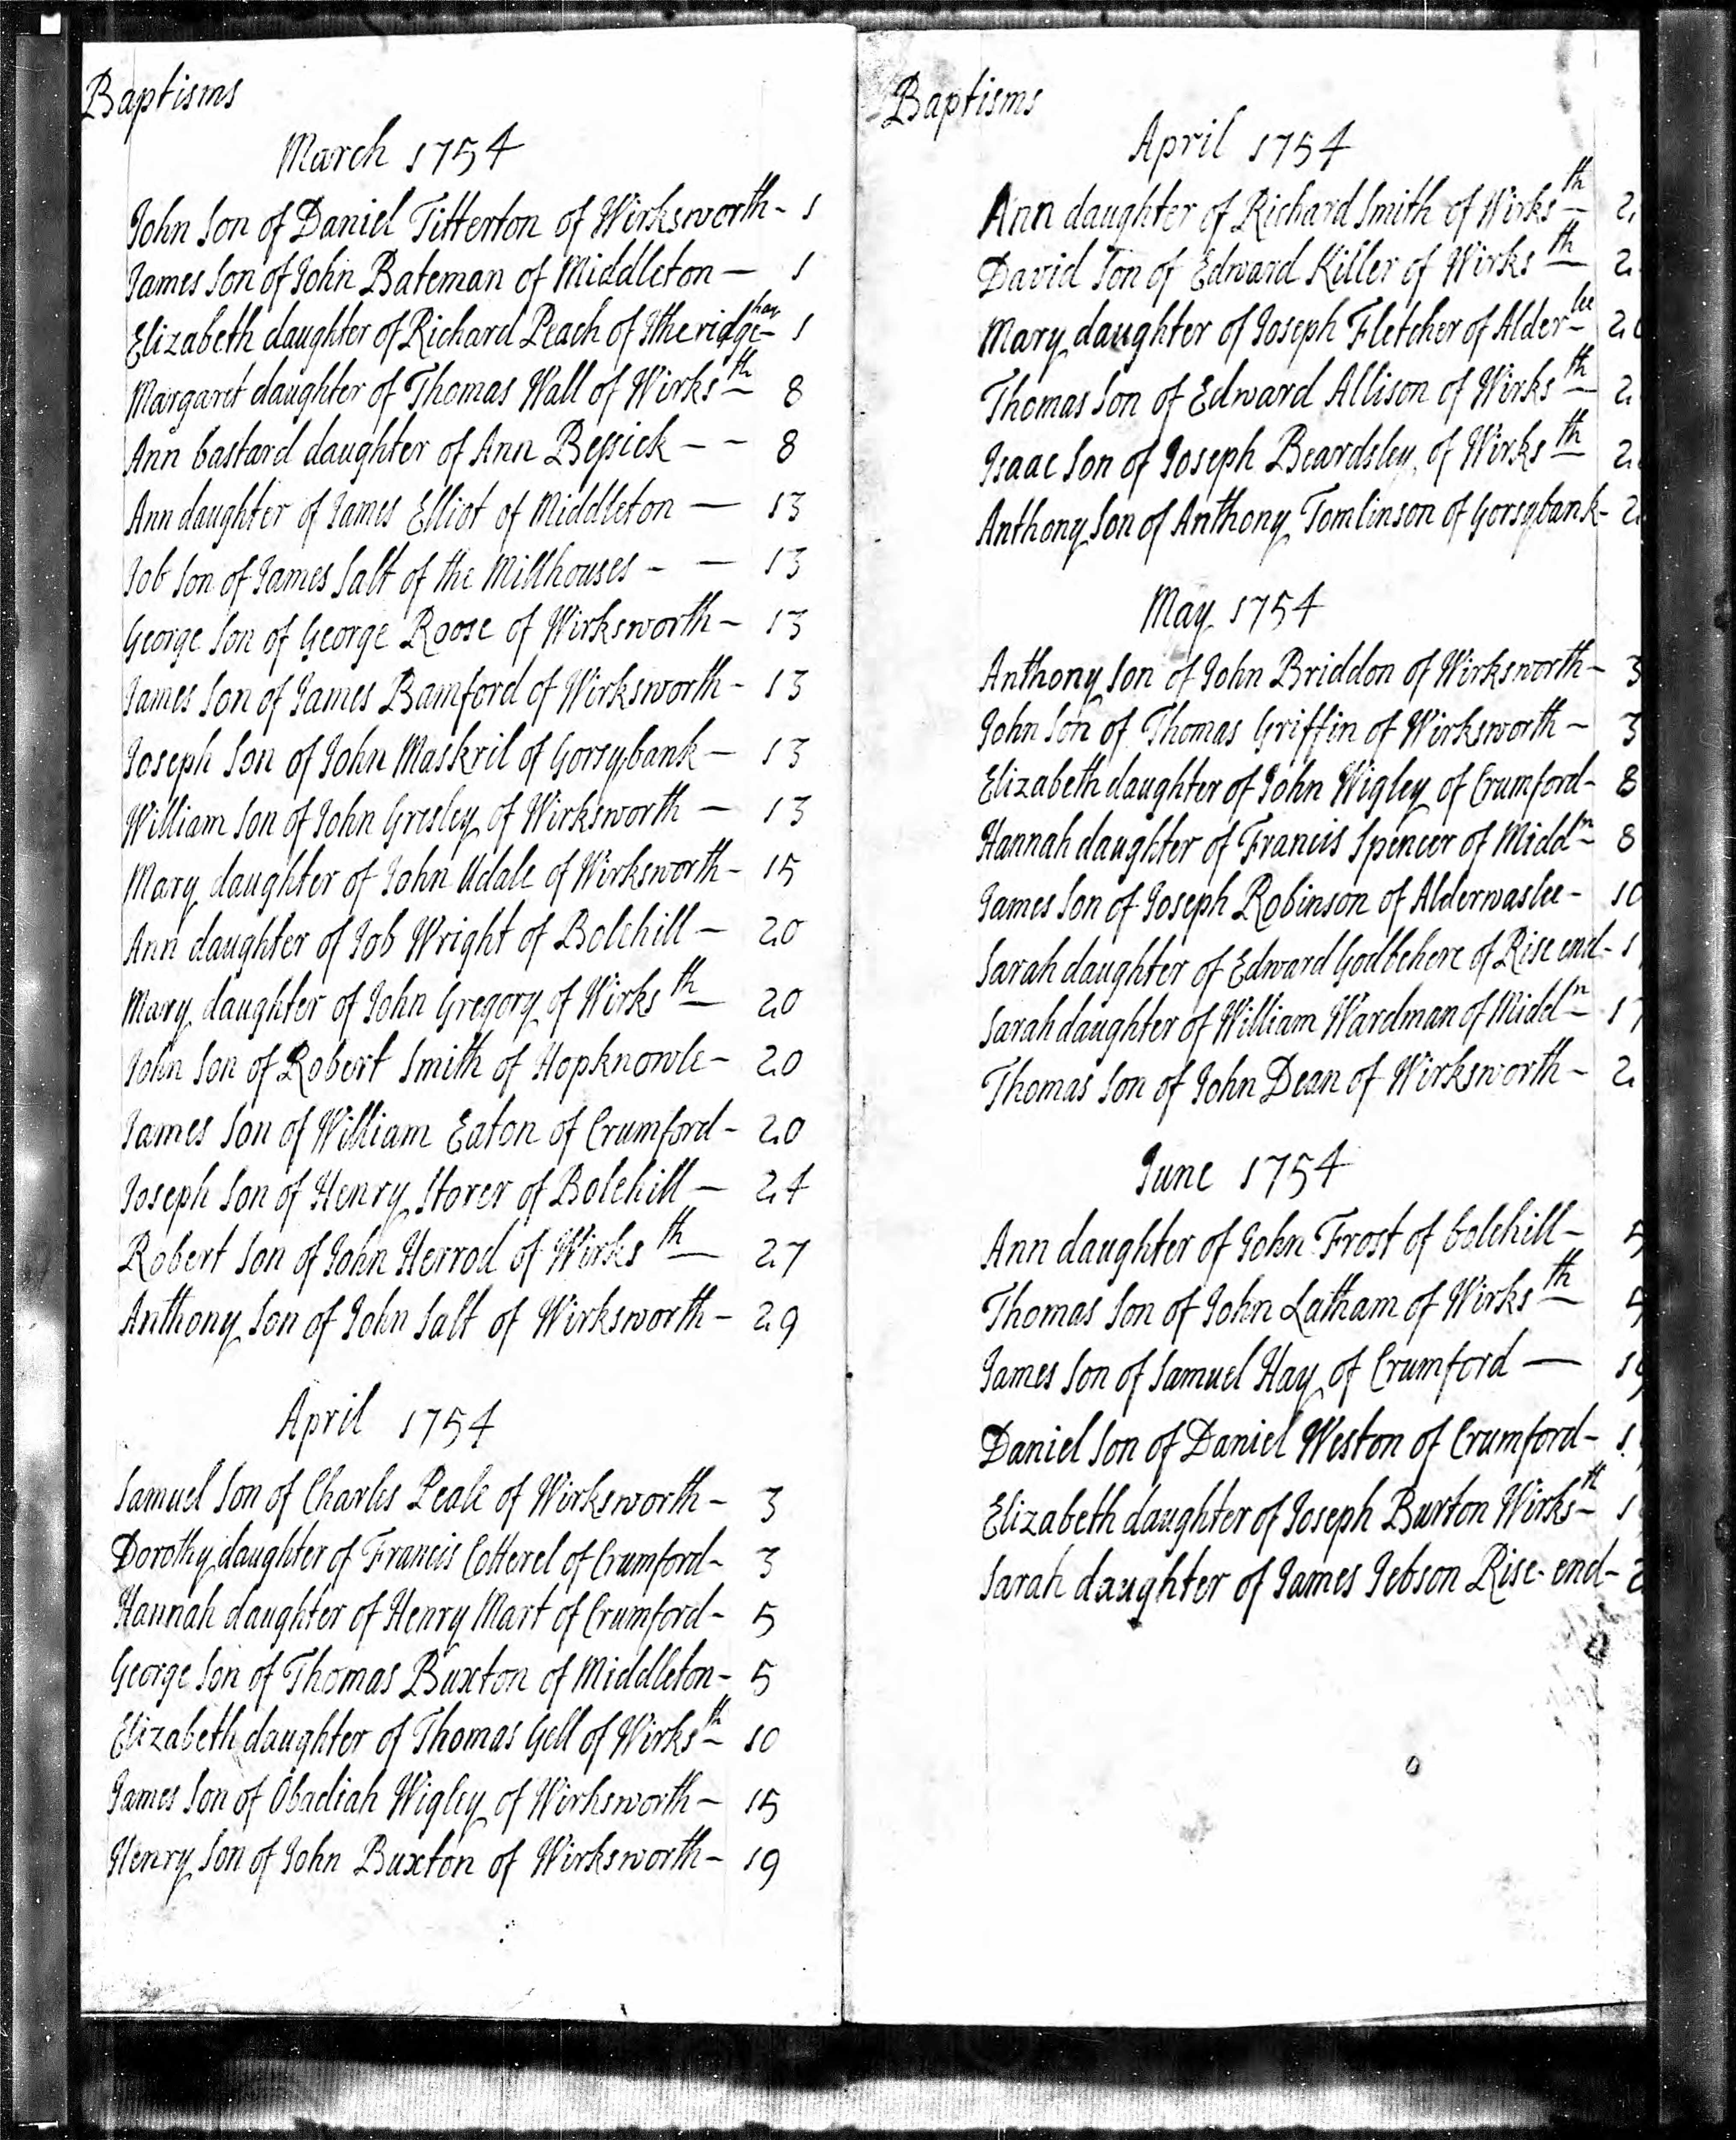 Baptisms
March 1754
John Son of Daniel Titterton of Wirksworth - 1
James Son of John Bateman of Middleton — 1
Elizabeth daughter of Richard Peach of Itheridgehay - 1
Margaret daughter of Thomas Wall of Wirksth — 8
Ann bastard daughter of Ann Bessick - - 8
Ann daughter of James Elliot of Middleton — 13
Job Son of James Salt of the Millhouses - — 13
George Son of George Roose of Wirksworth - 13
James Son of James Bamford of Wirksworth - 13
Joseph Son of John Maskril of Gorsybank — 13
William Son of John Gresley of Wirksworth — 13
Mary daughter of John Udale of Wirksworth - 15
Ann daughter of Job Wright of Bolehill — 20
Mary daughter of John Gregory of Wirksth — 20
John Son of Robert Smith of Hopknowle - 20
James Son of William Eaton of Crumford - 20
Joseph Son of Henry Storer of Bolehill — 24
Robert Son of John Herrod of Wirksth — 27
Anthony Son of John Salt of Wirksworth - 29
April 1754
Samuel Son of Charles Peale of Wirksworth - 3
Dorothy daughter of Francis Cotterel of Crumford - 3
Hannah daughter of Henry Mart of Crumford - 5
George Son of Thomas Buxton of Middleton - 5
Elizabeth daughter of Thomas Gell of Wirksth - 10
James Son of Obadiah Wigley of Wirksworth - 15
Henry Son of John Buxton of Wirksworth - 19
Baptisms
April 1754
Ann daughter of Richard Smith of Wirksth — 2
David Son of Edward Killer of Wirksth — 2
Mary daughter of Joseph Fletcher of Alderlee - 2
Thomas Son of Edward Allison of Wirksth — 2
Isaac Son of Joseph Beardsley of Wirksth — 2
Anthony Son of Anthony Tomlinson of Gorsybank - 2
May 1754
Anthony Son of John Briddon of Wirksworth - 3
John Son of Thomas Griffin of Wirksworth - 3
Elizabeth daughter of John Wigley of Crumford - 8
Hannah daughter of Francis Spencer of Middn - 8
James Son of Joseph Robinson of Alderwaslee - 10
Sarah daughter of Edward Godbehere of Rise end - 1
Sarah daughter of William Wardman of Middn - 17
Thomas Son of John Dean of Wirksworth - 2
June 1754
Ann daughter of John Frost of bolehill - 5
Thomas Son of John Latham of Wirksth — 5
James Son of Samuel Hay of Crumford — 1
Daniel Son of Daniel Weston of Crumford - 1
Elizabeth daughter of Joseph Burton Wirksth - 1
Sarah daughter of James Jebson Rise-end - 2